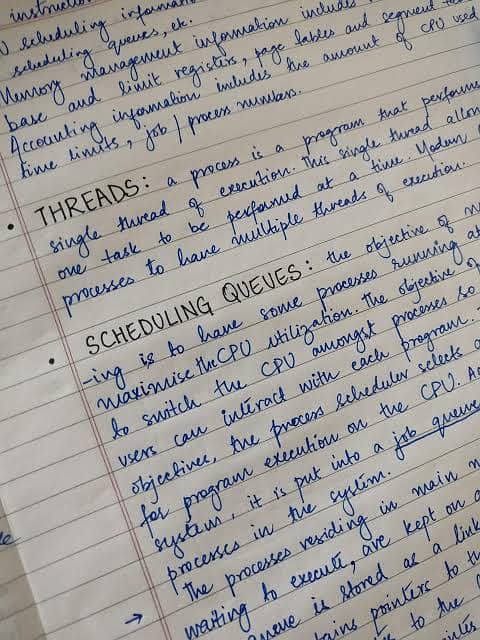 instruction
scheduling information
scheduling queues, etc.
Memory management information includes
base and limit registers, page tables and segment
Accounting information includes the amount of CPU used
time limits, job / process numbers.
• THREADS: a process is a program that performs
single thread of execution. This single thread allow
one task to be performed at a time. Modern
processes to have multiple threads of execution.
• SCHEDULING QUEUES: the objective of
-ing is to have some processes running at
maximise the CPU utilization. The objective of
to switch the CPU amongst processes so
users can interact with each program.
objectives, the process scheduler selects
for program execution on the CPU.
system, it is put into a job queue
processes in the system.
→ The processes residing in main
waiting to execute, are kept on
Queue is stored as a link
pointers to
to the